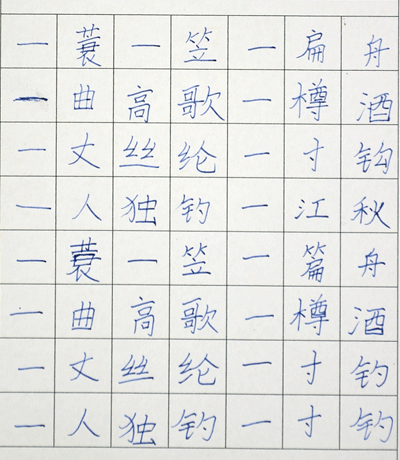 一蓑一笠一扁舟
一曲高歌一樽酒
一丈丝纶一寸钩
一人独钓一江秋
一蓑一笠一篇舟
一曲高歌一樽酒
一丈丝纶一寸钓
一人独钓一寸钓